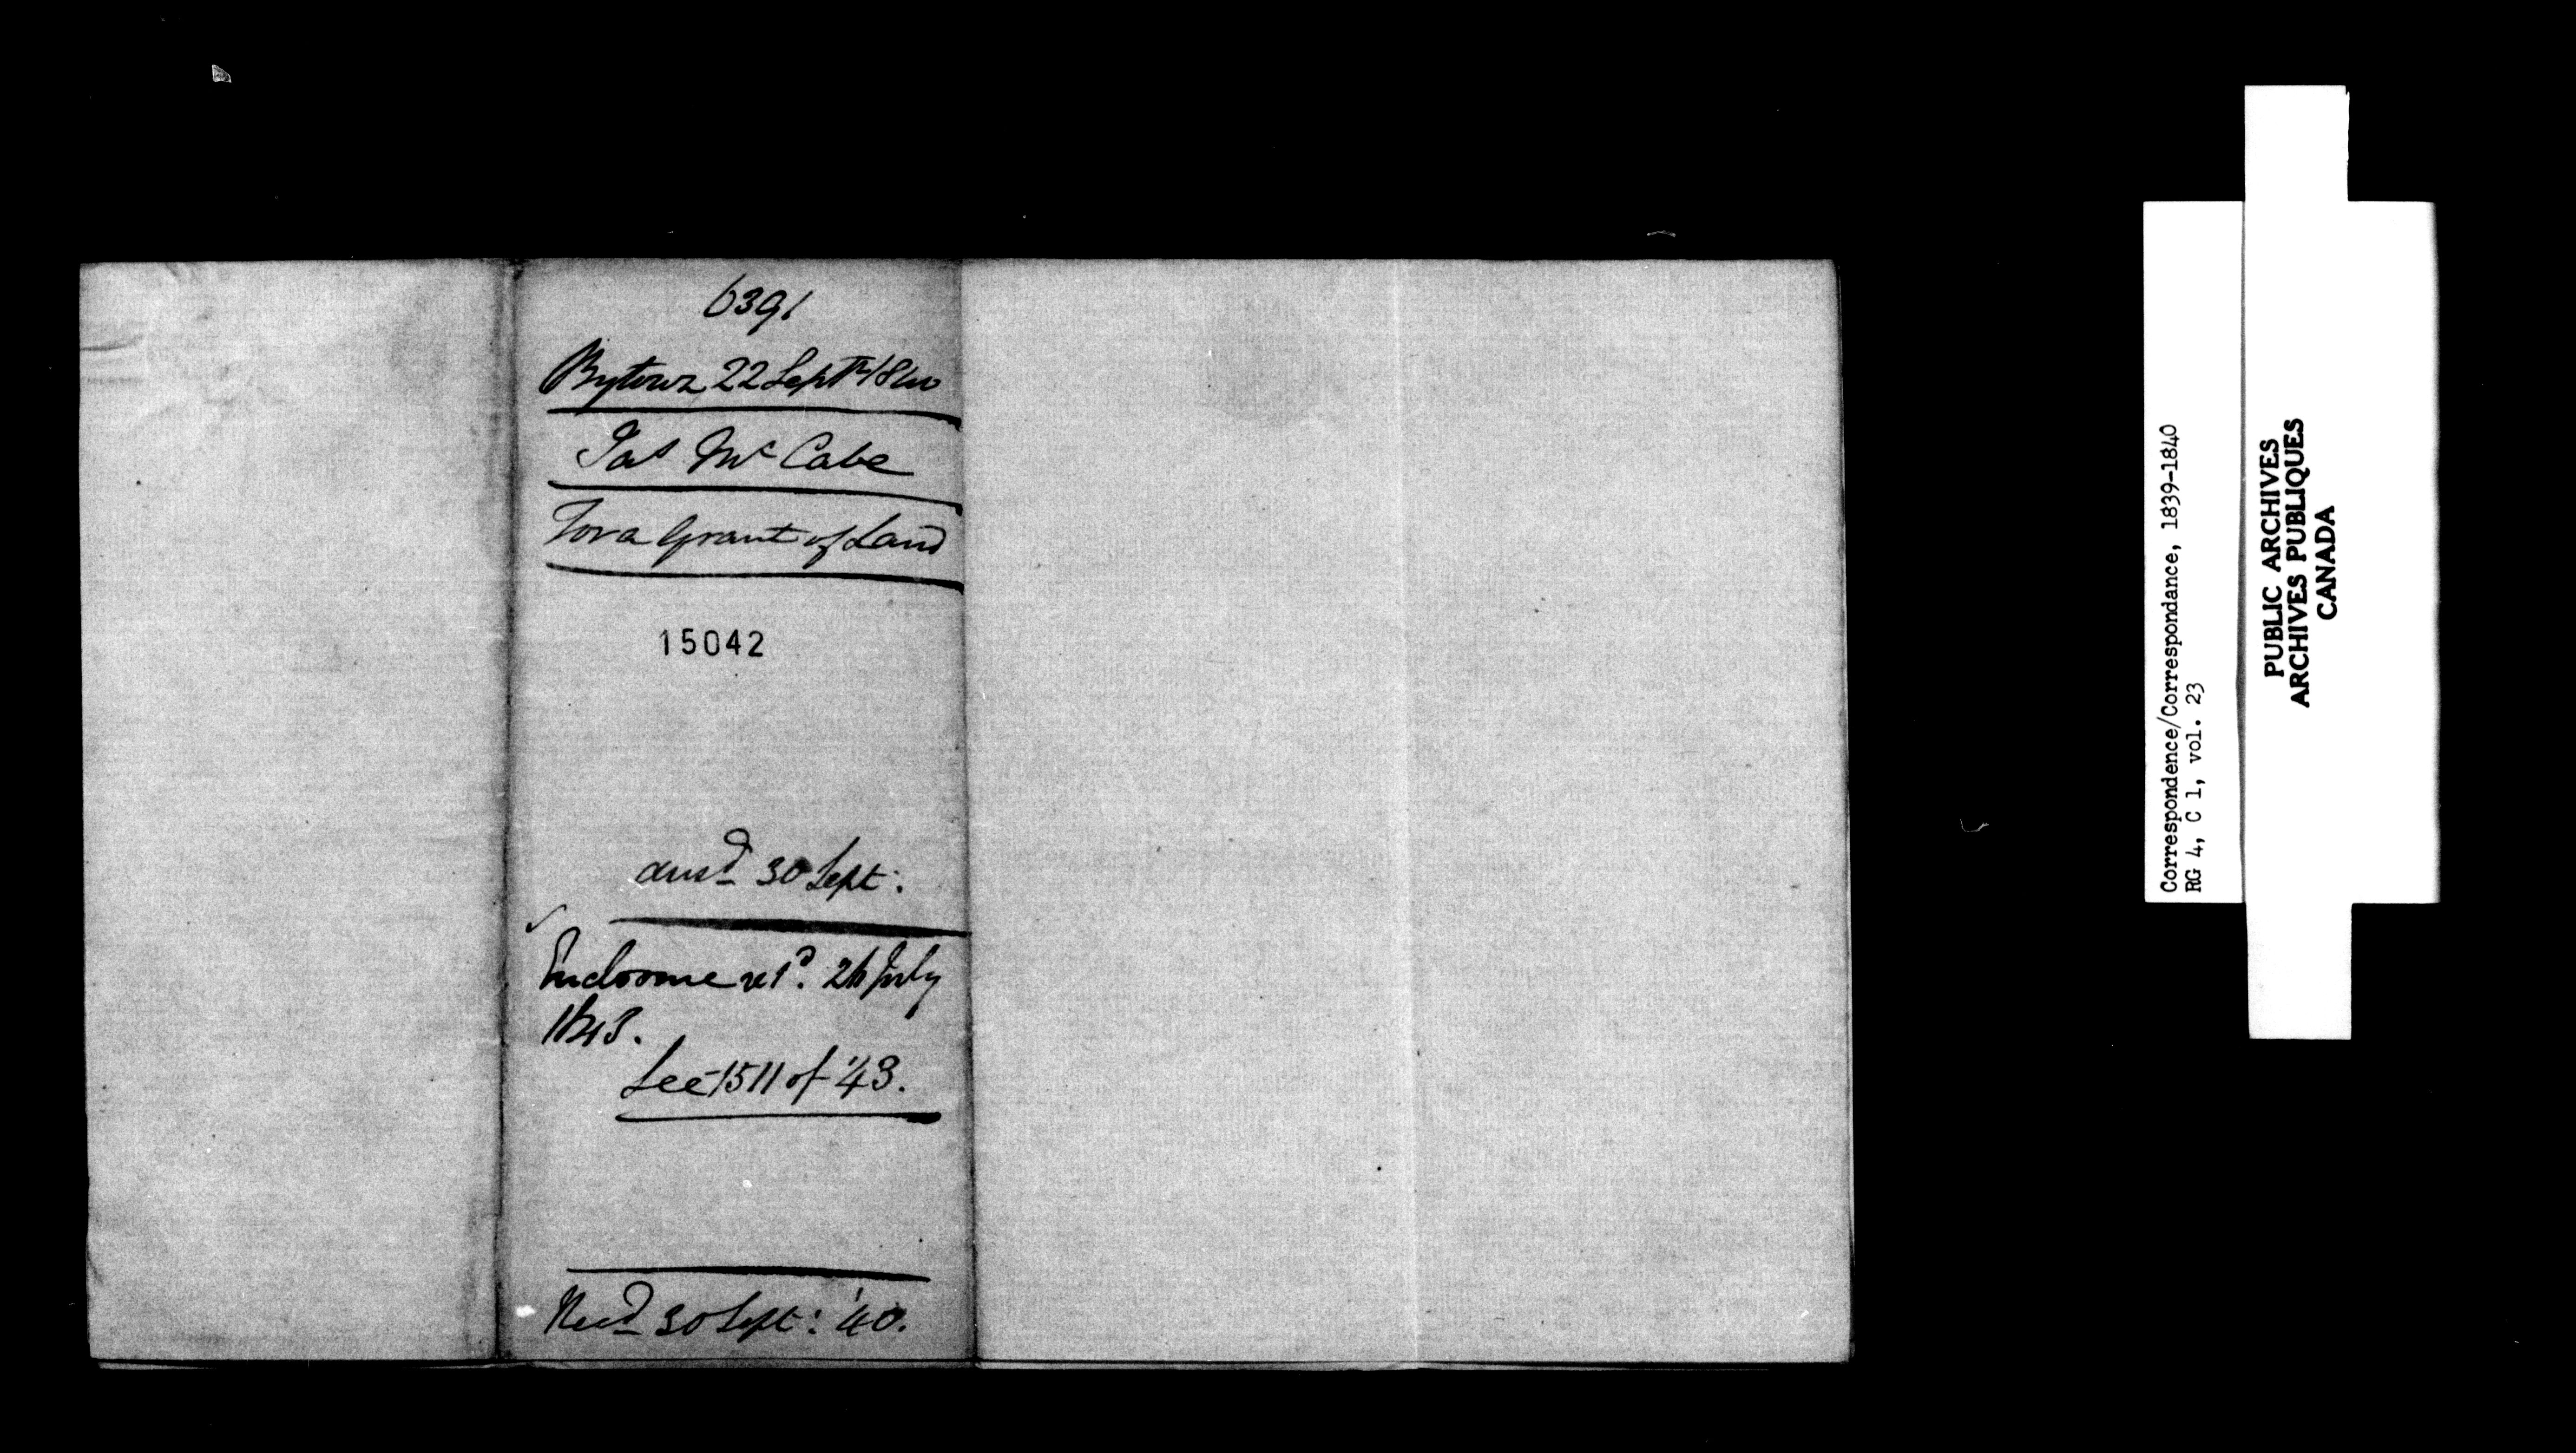 6391
Bytown 22 Septr 1840
Jas Mc Cabe
For a Grant of Land
15042
ansd 30 Sept:
Enclosure retd. 26 July
1843.
See 1511 of '43.
Recd 30 Sept: '40.
Correspondence/Correspondance, 1839-1840
RG 4, C 1, vol. 23
PUBLIC ARCHIVES
ARCHIVES PUBLIQUES
CANADA